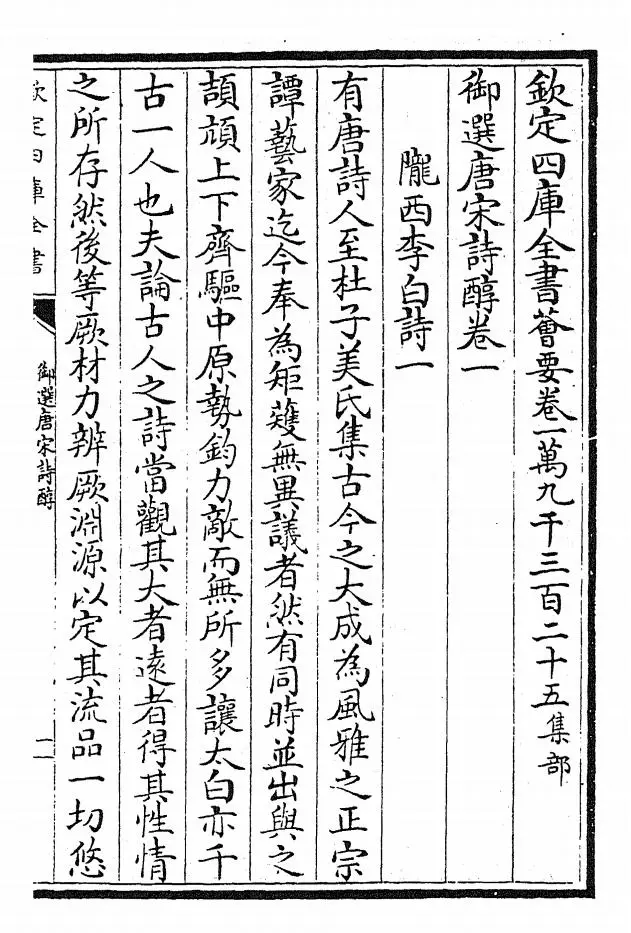 欽定四庫全書薈要卷一萬九千三百二十五集部
御選唐宋詩醇卷一
隴西李白詩一
有唐詩人至杜子美氏集古今之大成為風雅之正宗
譚藝家迄今奉為矩矱無異議者然有同時並出與之
頡頏上下齊驅中原勢鈞力敵而無所多讓太白亦千
古一人也夫論古人之詩當觀其大者遠者得其性情
之所存然後等厥材力辨厥淵源以定其流品一切悠
欽定四庫全書
御選唐宋詩醇
一